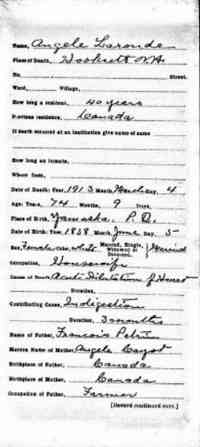 Name, Angele Laronde
Place of Death, Hooksett N.H.
No. Street.
Ward, Village,
How long a resident, 40 years
Previous residence, Canada
If death occurred at an institution give name of same
How long an inmate,
Where from,
Date of Death: Year, 1913 Month, March Day, 4
Age: Years, 74 Months, 9 Days,
Place of Birth, Yamaska, P. Q.
Date of Birth: Year, 1838 Month, June Day, 5
Sex, Female Color, White Married, Single, Widowed or Divorced, Married
Occupation, Housewife
Cause of Death, Acute Dilatation of Heart
Duration,
Contributing Cause, Indigestion
Duration, 3 months
Name of Father, Francois
Maiden Name of Mother, Angele
Birthplace of Father, Canada
Birthplace of Mother, Canada
Occupation of Father, Farmer